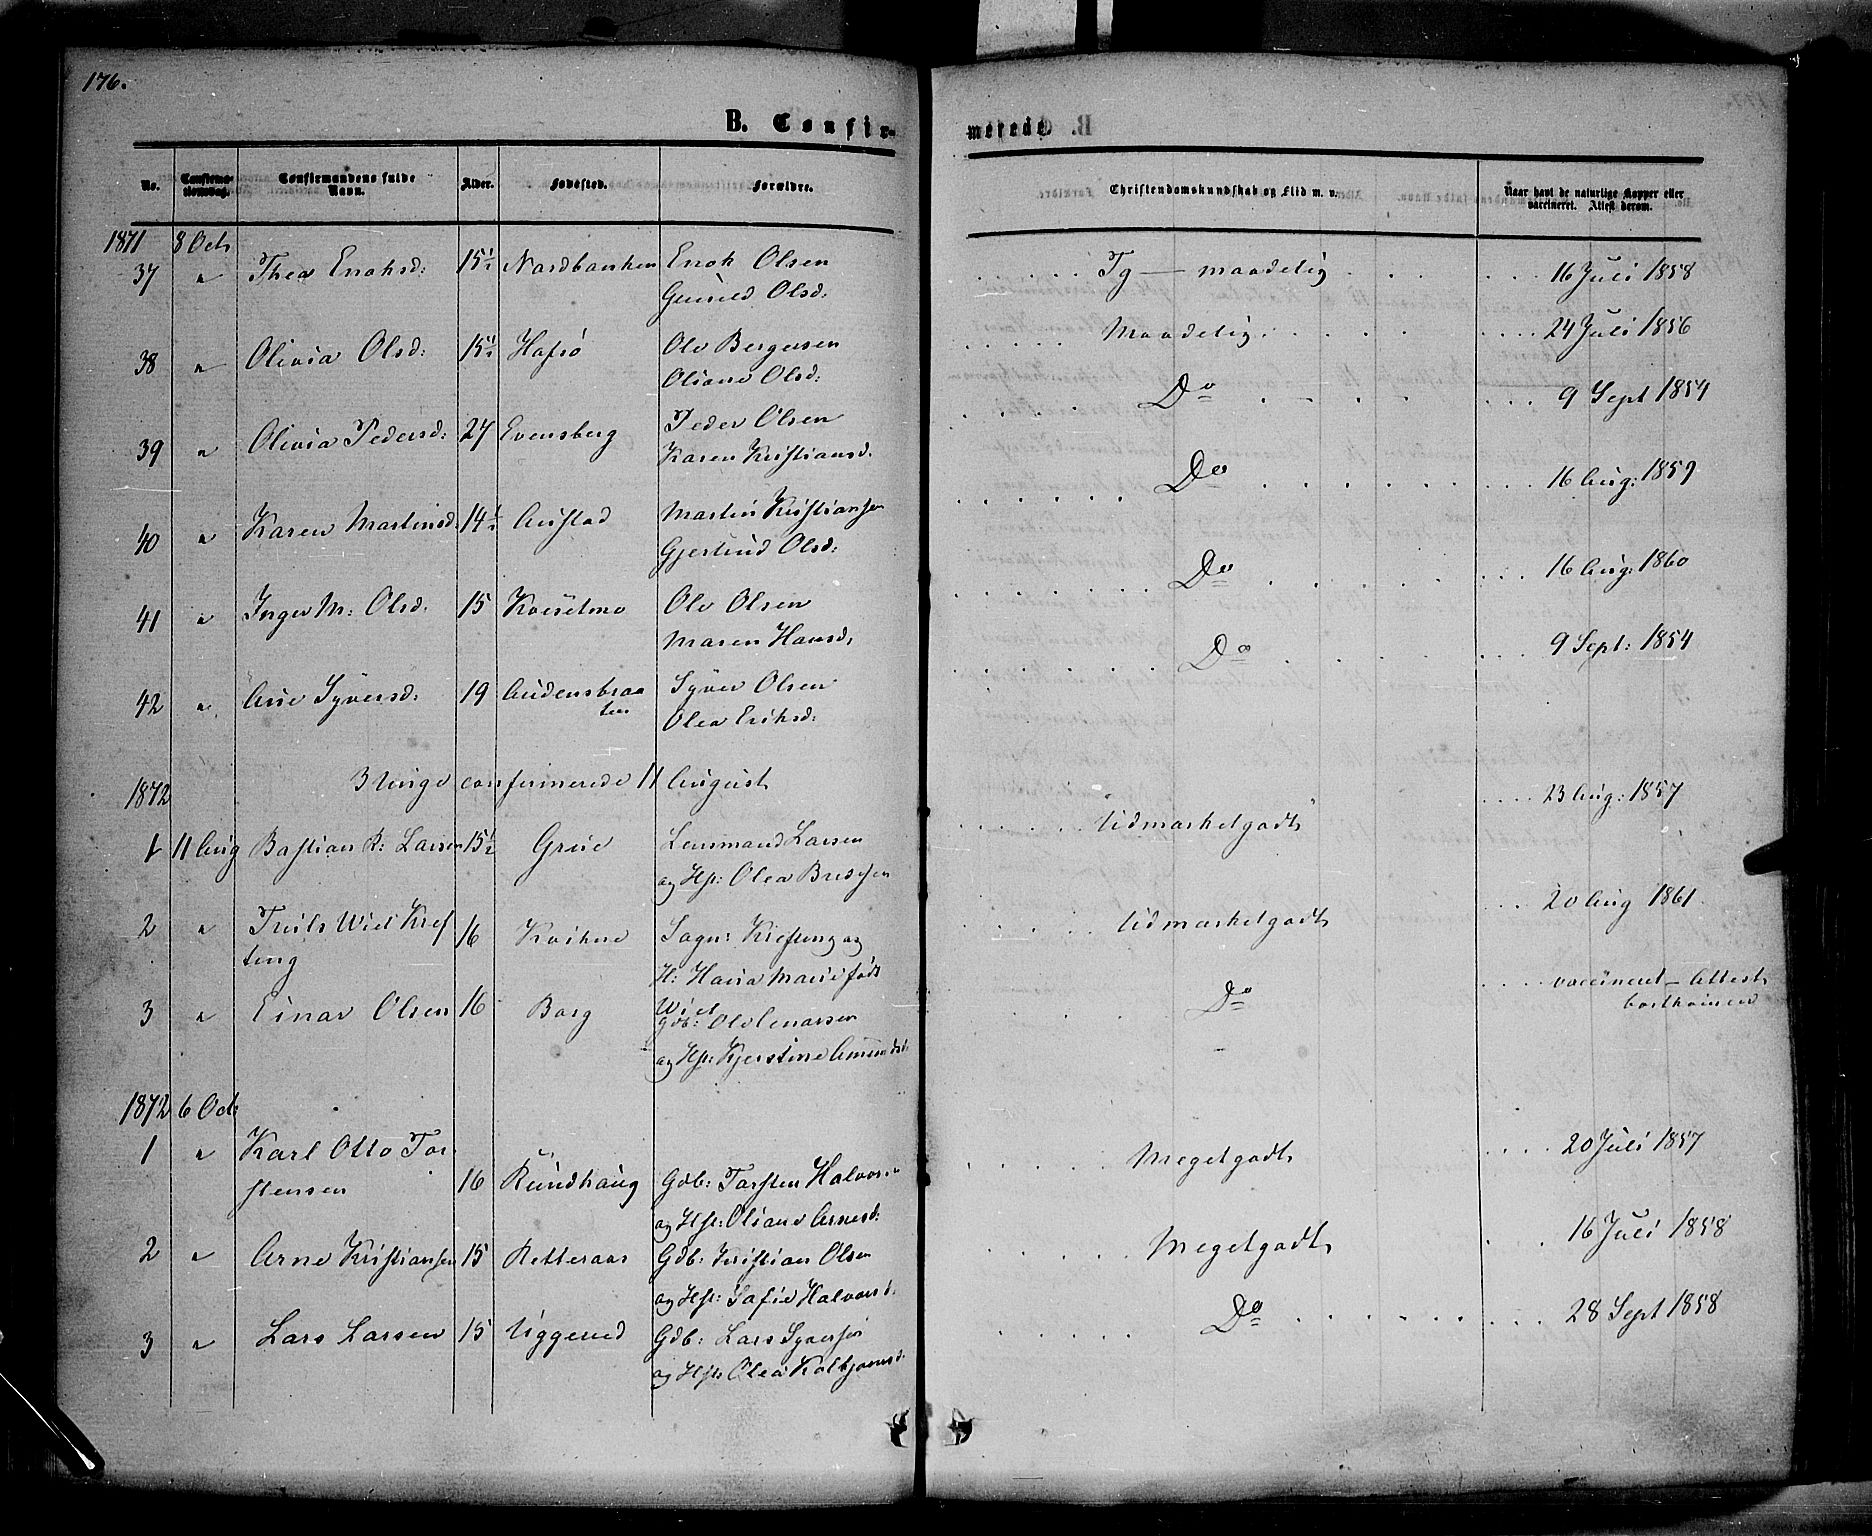 176.
B. Confir-
merede
No.
Confirma-
tionsdag.
Confirmandens fulde
Navn.
Alder.
Fødested.
Forældre.
Christendomskundskab og Flid m. v.
Naar havt de naturlige Kopper eller
vaccineret. Attest derom.
1871 8 Oct
37 " Thea Enoksd: 15½ Nordbanken Enok Olsen Tg — maadelig 16 Juli 1858
Gunild Olsd:
38 " Olivia Olsd: 15½ Hafsø Olv Bergersen Maadelig 24 Juli 1856
Oliane Olsd:
39 " Olivia Pedersd: 27 Evensberg Peder Olsen Do 9 Sept 1854
Karen Kristiansd.
40 " Karen Martinsd: 14½ Austad Martin Kristiansen Do 16 Aug: 1859
Gjertrud Olsd:
41 " Inger M: Olsd. 15 Kviselmo Olv Olsen Do 16 Aug: 1860
Maren Hansd,
42 " Ane Syversd: 19 Audensbraa Syver Olsen Do 9 Sept: 1854
ten Olea Eriksd:
1872 3 Unge confirmerede 11 August
1 11 Aug Bastian R: Larsen 15½ Grue Lensmand Larsen Udmærketgodt 23 Aug: 1857
og Hst: Olea
2 " Truls Wiel Kref 16 Kvikne Sogn: Krefting og Udmærketgodt 20 Aug 1861
ting H: Hava Marie født
Wiel
3 " Einar Olsen 16 Borg Gdb: Olv Do vaccineret – Attest
bortkommen
og Hst: Kjerstine Amundsd:
1872 6 Oct
1 " Karl Otto Tor Megetgodt 20 Juli 1857
stensen 16 Rundhaug Gdb: Torsten Halvorsen
og Hst: Oliane Arnesd:
2 " Arne Kristiansen 15 Retteraas Gdb: Kristian Olsen Megetgodt 16 Juli 1858
og Hst: Sofie Halvorsd.
3 " Lars Larsen 15 Uggerud Gdb: Lars Syversen Do 28 Sept 1858
og Hst: Olea Kolbjørnsd.